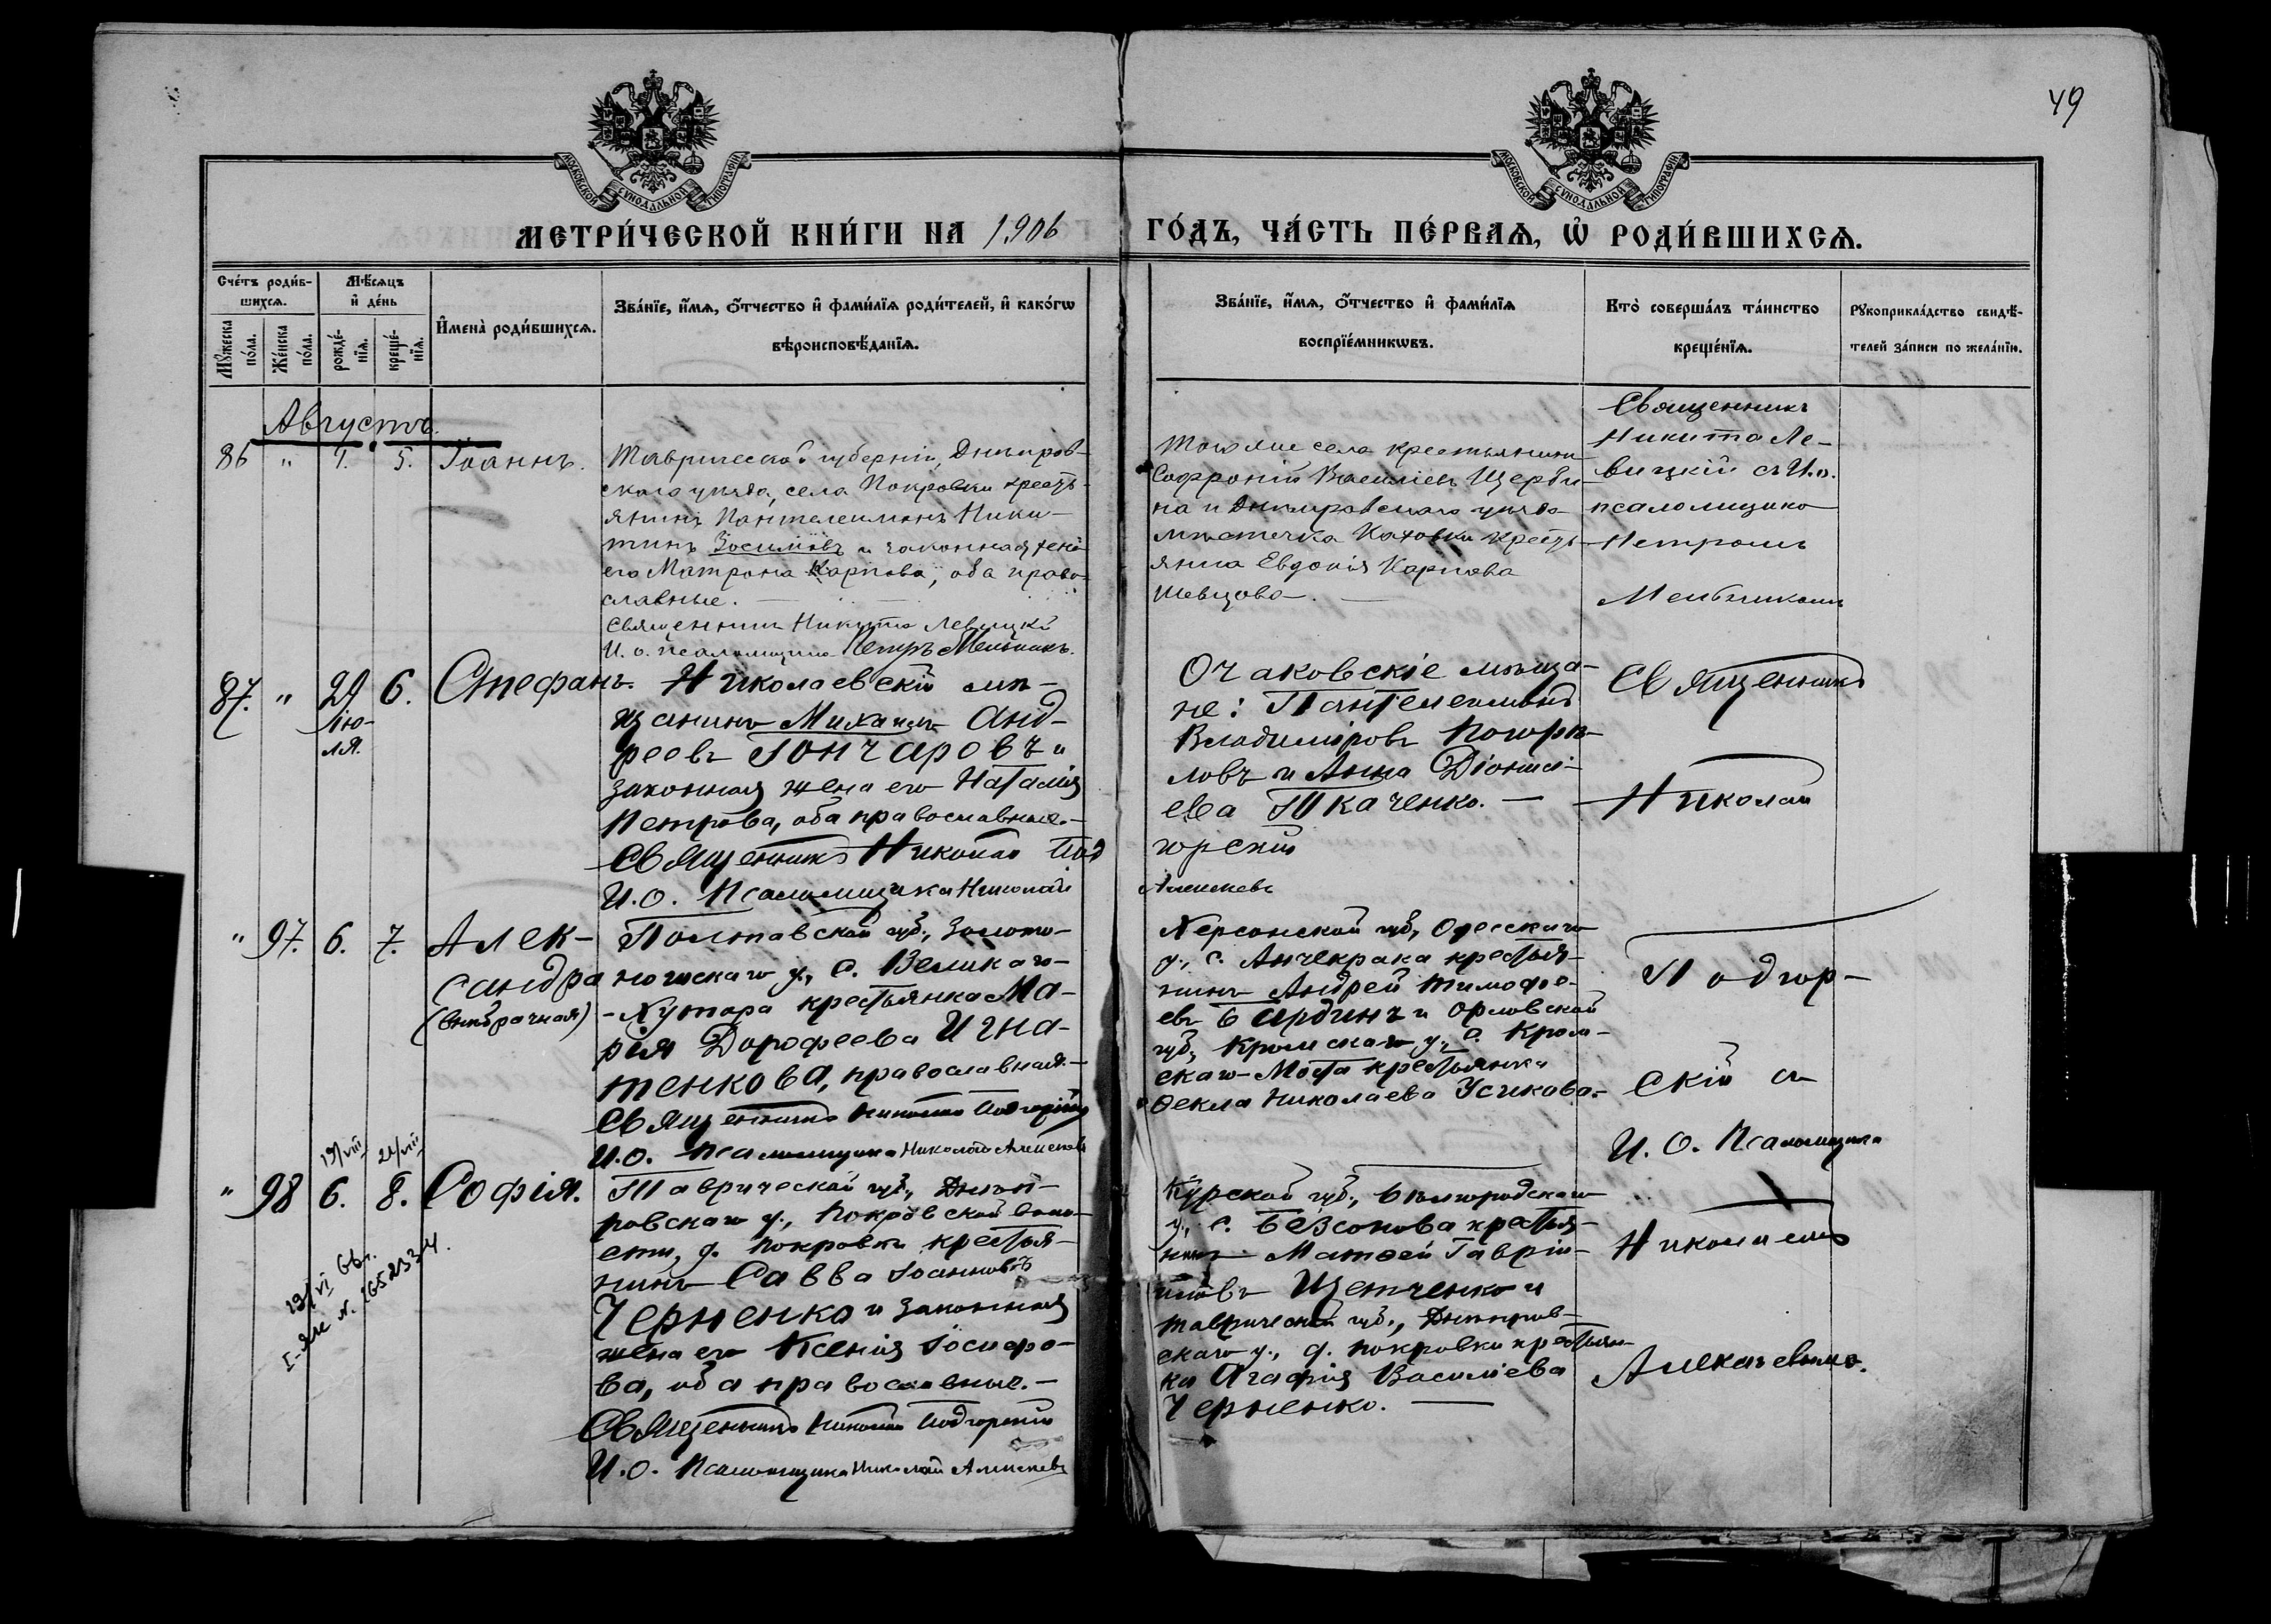 49
МОСКОВСКОЙ СУНОДАЛЬНОЙ ТИПОГРАФІИ
МОСКОВСКОЙ СУНОДАЛЬНОЙ ТИПОГРАФІИ
МЕТРИ́ЧЕСКОЙ КНИ́ГИ НА 1906 ГО́ДЪ, ЧА́СТЬ ПЕ́РВАѦ, Ѡ҆ РОДИ́ВШИХСѦ.
Сче́тъ роди́в-
шихсѧ.
Мꙋ́жеска по́ла.
Же́нска по́ла.
Мѣ́сѧцъ
и҆ де́нь
рожде́-
нїѧ.
креще́-
нїѧ.
И҆мена̀ роди́вшихсѧ.
Зва́нїе, и҆́мѧ, ѻ҆́тчество и҆ фами́лїѧ роди́телей, и҆ како́гѡ
вѣроисповѣ́данїѧ.
Зва́нїе, и҆́мѧ, ѻ҆́тчество и҆ фами́лїѧ
воспрїе́мникѡвъ.
Кто̀ соверша́лъ та́инство
креще́нїѧ.
Рꙋкоприкла́дство свидѣ́-
телей за́писи по жела́нїю.
Августъ.
86 " 1. 5. Іоаннъ.
Таврической губерніи, Днѣпров-
скаго уѣзда, села Покровки кресть-
янинъ Пантелеимонъ Ники-
тинъ Зосимовъ и законная жена
его Матрона Карпова, оба право-
славные.
Священникъ Никита Левицкій
И. о. псаломщика Петръ Мельникъ.
Того же села крестьянинъ
Софроній Василіевъ Щерби
на и Днѣпровскаго уѣзда
мѣстечка Каховки кресть-
янка Евдокія Карпова
Шевцова.
Священникъ
Никита Ле-
вицкій съ И. о.
псаломщика
Петромъ
Мельникомъ
87. " 29 Ію-
ля. 6. Стефанъ.
Николаевскій мѣ-
щанинъ Михаилъ Анд-
реевъ Гончаровъ и
законная жена его Наталія
Петрова, оба православные.-
Священникъ Николай Под
горскій
И. о. Псаломщика Николай
Очаковскіе мѣща-
не: Пантелеимонъ
Владиміровъ Погорѣ-
ловъ и Анна Діонисі-
ева Ткаченко. -
Священникъ
Николай
" 97. 6. 7. Алек-
сандра
(внѣбрачная)
Полтавской губ., Золото-
ношскаго у., с. Великаго-
-Хутора крестьянка Ма-
рія Дорофеева Игна-
тенкова, православная.-
Священникъ Николай Подгорскій
И. о. Псаломщика Николай
Херсонской губ., Одесскаго
у., с. Анчекрака крестья-
нинъ Андрей Тимофе-
евъ Бардинъ и Орловской
губ., Кромскаго у., с. Кром-
скаго-Моста крестьянка
Ѳекла Николаева Усикова.-
Подгор-
скій съ
И. О. Псаломщика
19/VIII 21/VIII
" 98 6. 8. Софія.
Таврической губ., Днѣп-
ровскаго у., Покровской воло-
сти, д. Покровки крестья-
нинъ Савва Іоанновъ
Черненко и законная
жена его Ксенія Іосифо-
ва, оба православные.-
Священникъ Николай Подгорскій
И. о. Псаломщика Николай
Курской губ., Бѣлгородскаго
у., с. Безсонова крестья-
нинъ Матѳей Гаврі-
иловъ Щетченко и
Таврической губ., Днѣпров-
скаго у., д. Покровки крестьян-
ка Агафія Василіева
Черненко.
Николаемъ